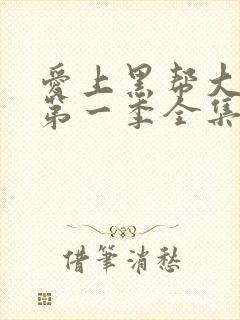 爱上黑帮大
第一季全集
借筆消愁